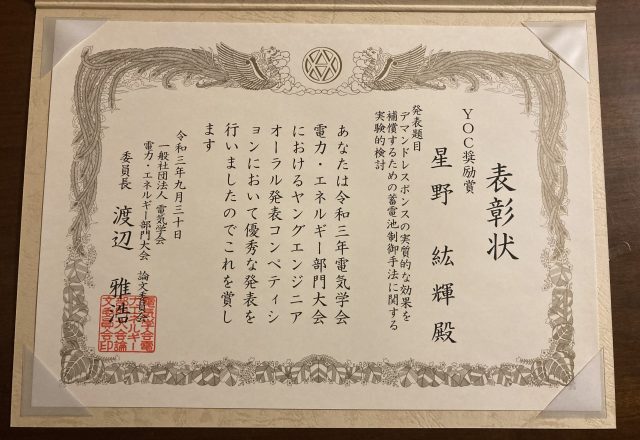 表彰状
YOC奨励賞
星野 紘輝 殿
発表題目
デマンドレスポンスの実質的な効果を
補償するための蓄電池制御手法に関する
実験的検討
あなたは令和三年電気学会
電力・エネルギー部門大会
におけるヤングエンジニア
オーラル発表コンペティシ
ョンにおいて優秀な発表を
行いましたのでこれを賞し
ます
令和三年九月三十日
一般社団法人 電気学会
電力・エネルギー部門大会 論文委員会
委員長 渡辺 雅浩